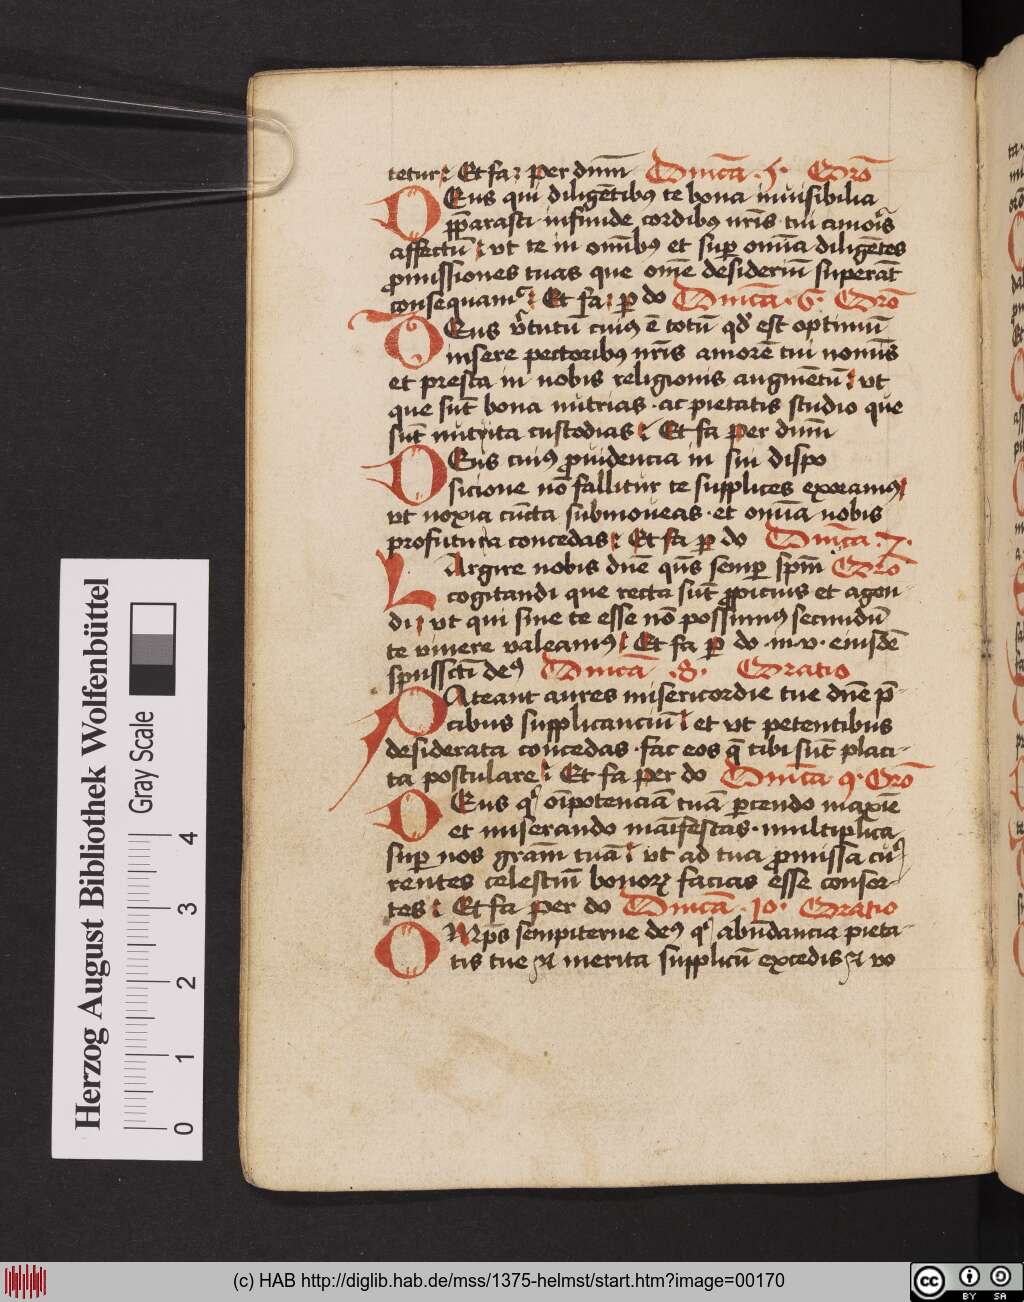 tetur Et fa per dnm̄ Dnīca .5. Oro
DEus qui diligētibꝰ te bona inuisibilia
p̄parasti infunde cordibꝰ nr̄is tui amoris
affectū vt te in omībꝰ et suꝑ om̄ia diligētes
ꝓmissiones tuas que om̄e desideriū superāt
consequamr Et fa ꝑ do Dnīca .6. Oro
DEus v̄tutū cuiꝰ ē totū qd est optimū
insere pectoribꝰ nr̄is amorē tui nomīs
et presta in nobis religionis augmētū vt
que sūt bona nutrias ac pietatis studio que
sūt nutrita custodias Et fa per dnm̄
DEus cuiꝰ ꝓuidencia in sui dispo
sicione nō fallitur te supplices exoramꝰ
vt noxia cūcta submoueas et om̄ia nobis
profutura concedas Et fa ꝑ do Dnīca .7.
LArgire nobis dn̄e qs̄ semꝑ spm̄ Oro
cogitandi que recta sūt ꝓpicius et agen
di vt qui sine te esse nō possumꝰ secundū
te viuere valeamꝰ Et fa ꝑ do in v. eiusdē
spūs scti deꝰ Dnīca .8. Oratio
PAteant aures misericordie tue dn̄e p̄
cibus supplicanciū et vt petentibus
desiderata concedas fac eos q̄ tibi sūt placi
ta postulare Et fa per do Dnīca 9. Oro
DEus q oīpotenciā tuā ꝑcendo maxīe
et miserando maīfestas multiplica
suꝑ nos grām tuā vt ad tua ꝓmissa cur
rentes celestiū bonoꝝ facias esse consor
tes Et fa per do Dnīca .10. Oratio
OMps sempiterne deꝰ q abūdancia pieta
tis tue et merita supplicū excedis et vo
Herzog August Bibliothek Wolfenbüttel
Gray Scale
0 1 2 3 4
(c) HAB http://diglib.hab.de/mss/1375-helmst/start.htm?image=00170
cc BY SA